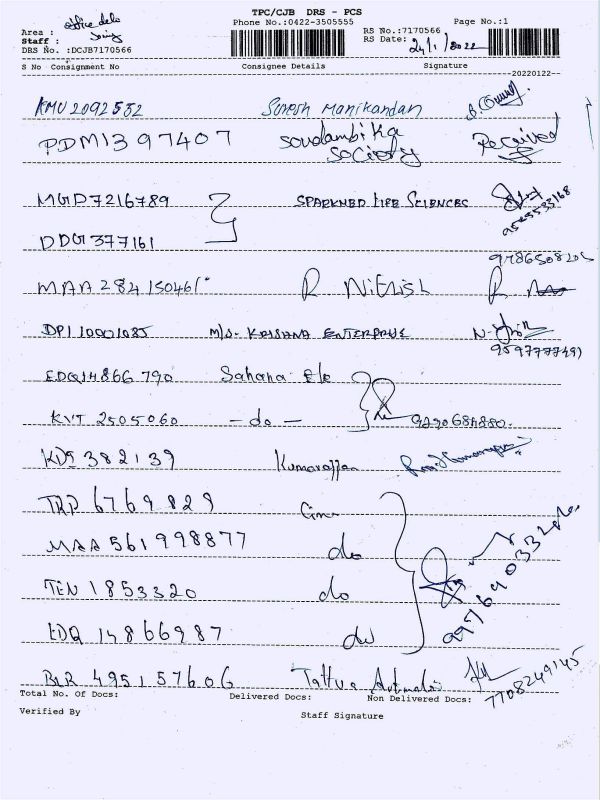 TPC/CJB DRS - PCS
Phone No.:0422-3505555
Page No.:1
Area : office delo
Staff :
DRS No. :DCJB7170566
RS No.:7170566
RS Date: 24/1/2022
S No Consignment No Consignee Details Signature
20220122
KMU2092552 Suresh Manikandan
PDM1397407 Soudambika Received
Society
MGD7216789 SPARKNED LIFE SCIENCES
9585533168
DDG1377161
9786508205
MAA 284150461 R Nithish R
DPI 10001085 M/S- KRISHNA ENTERPRISE
9597777491
EDQ14866790 Sahana Ele
KVT 2505060 - do - 9290684880
KDS 382139 Kumarappan
TRP 6769829
MAA 561998877 do
TEN 1853320 do
EDQ 14866987 do
BLR 495157606 Tattva
7708249145
Total No. Of Docs: Delivered Docs: Non Delivered Docs:
Verified By Staff Signature